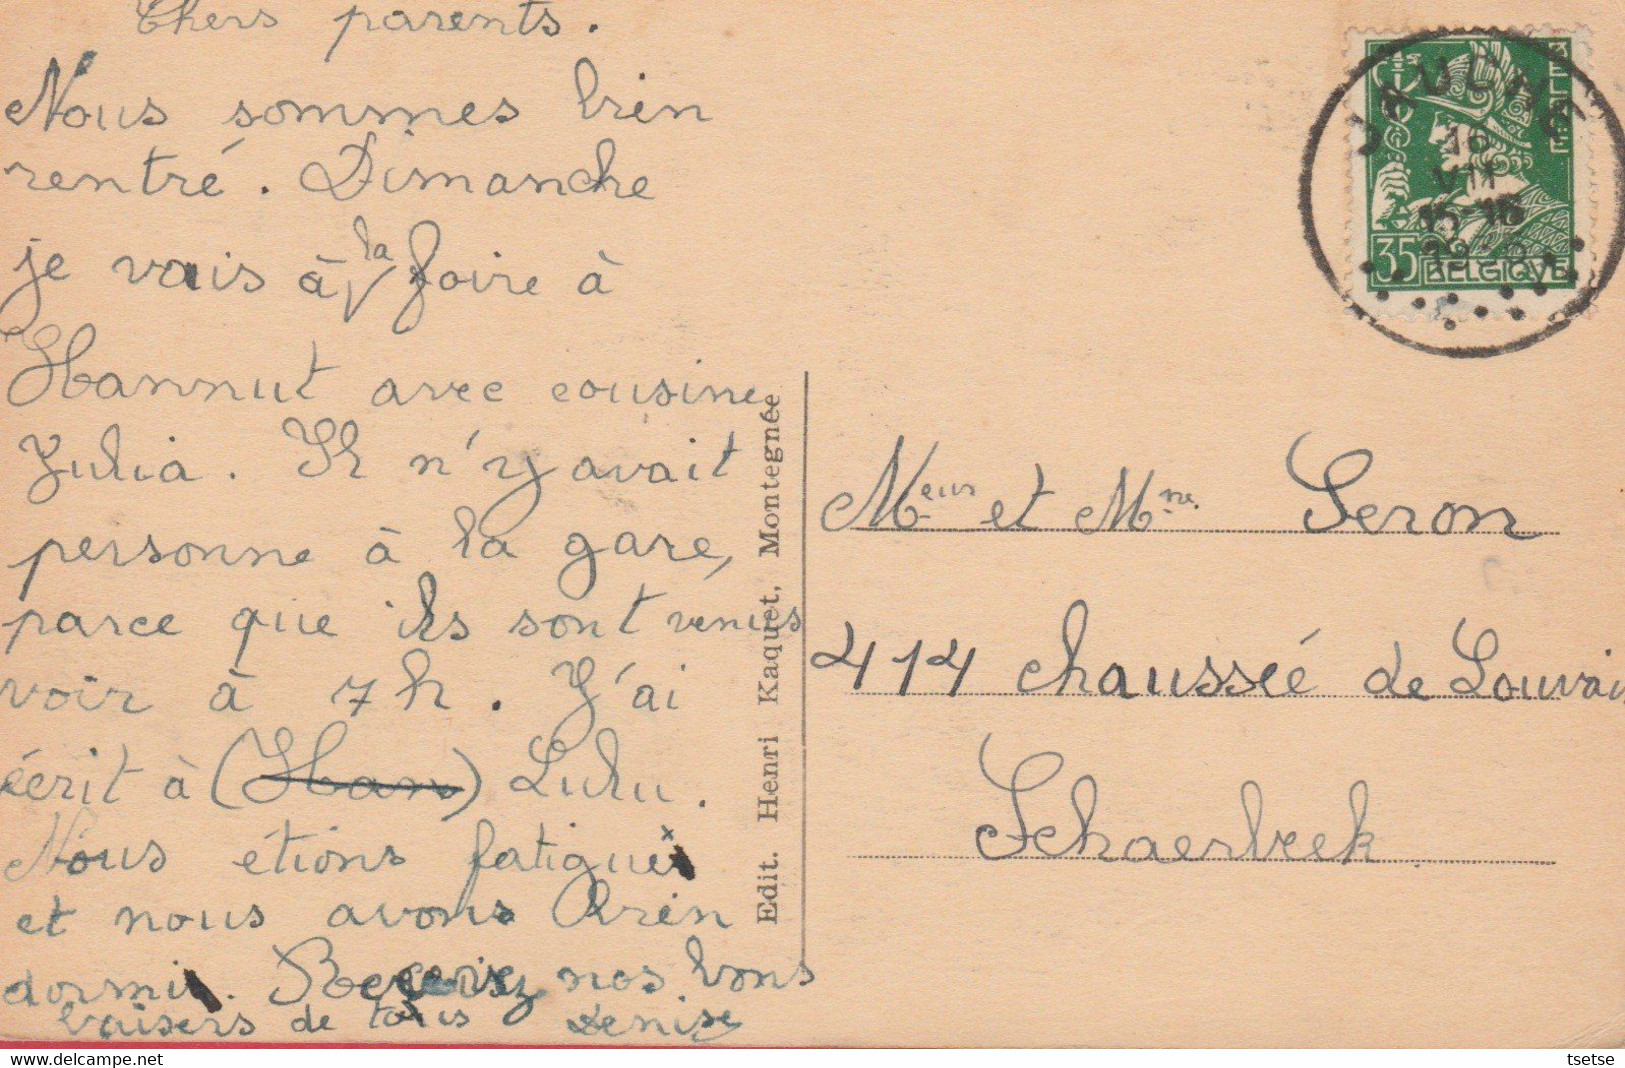 Chers parents.
Nous sommes bien
rentré. Dimanche
je vais à la foire à
Hannut avec cousine
Julia. Il n'y avait
personne à la gare,
parce que ils sont venus
voir à 7h. J'ai
écrit à (Han) Lulu.
Nous étions fatigué
et nous avons bien
dormi. Recevez nos bons
baisers de tous Denise
Edit. Henri Kaquet, Montegnée
JAUCHE
16
VII
15-16
19
35
BELGIQUE
BELGIE
Meur et Mme. Seron
414 chaussée de Louvain
Schaerbeek
tsetse